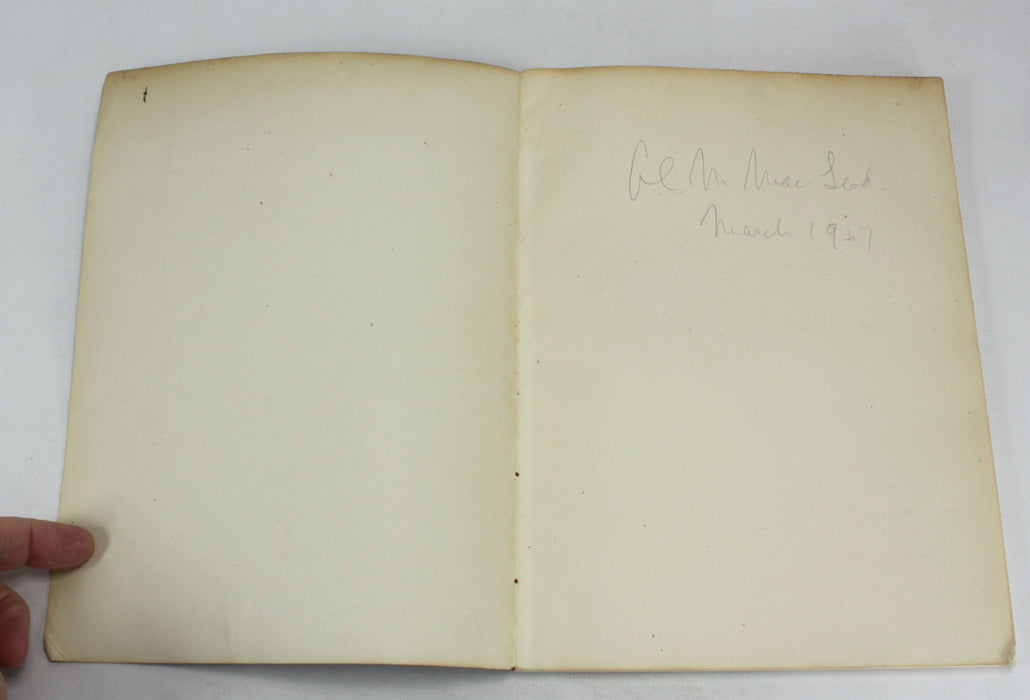 M. MacLeod.
March 1927